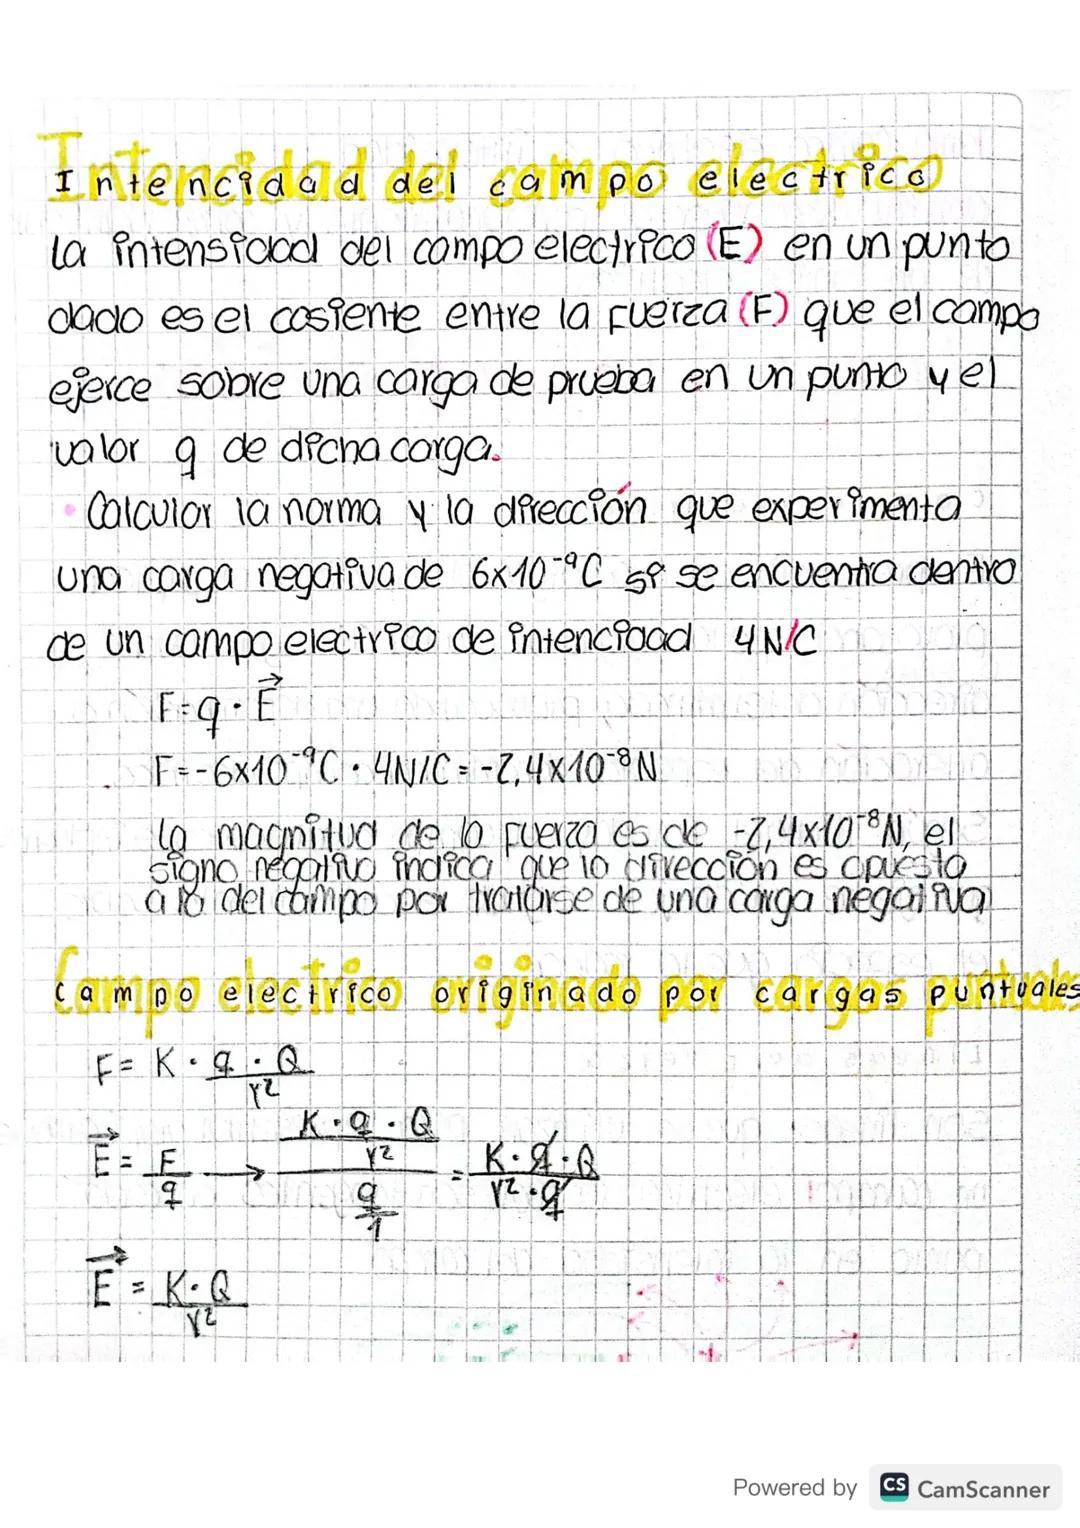 Intencidad del campo electrico
La intensidad del campo electrico (E) en un punto
dado es el cosiente entre la fuerza (F) que el campo
ejerce sobre una carga de prueba en un punto y el
valor q de dicha carga.
• Calcular la norma y la dirección que experimenta
una carga negativa de 6x10⁻⁹C si se encuentra dentro
de un campo electrico de intencidad 4 N/C
F=q·E⃗
F=-6x10⁻⁹C · 4N/C = -2,4x10⁻⁸N
La magnitud de la fuerza es de -2,4x10⁻⁸N, el
signo negativo indica que la dirección es opuesta
a la del campo por tratarse de una carga negativa
Campo electrico originado por cargas puntuales
F= K · q · Q / r²
E⃗ = F/q → (K · q · Q / r²) / (q/1) = K · q · Q / r² · q
E⃗ = K · Q / r²
Powered by CS CamScanner